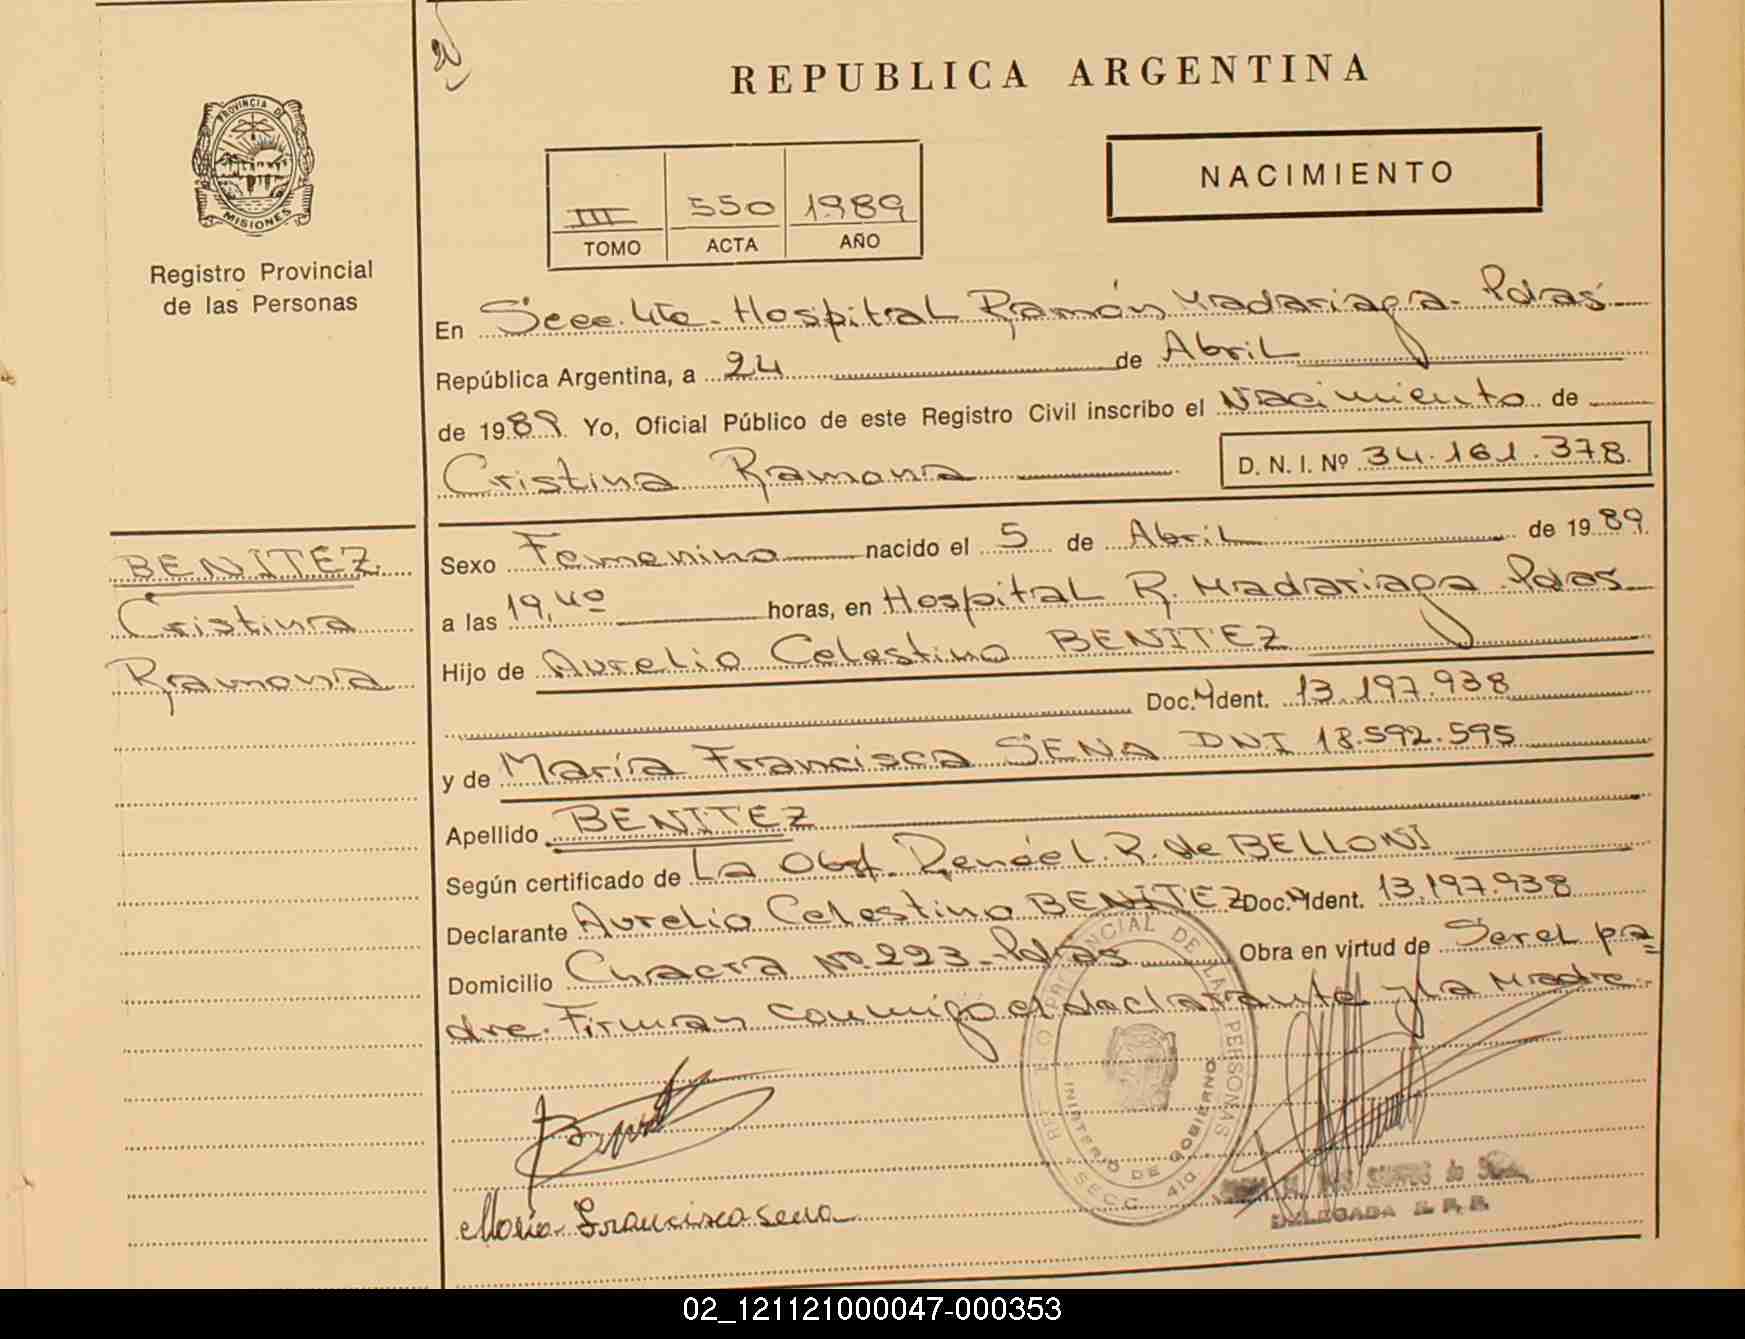 REPUBLICA ARGENTINA
PROVINCIA DE
MISIONES
Registro Provincial
de las Personas
NACIMIENTO
III 550 1989
TOMO ACTA AÑO
En Secc. 4ta - Hospital Ramón Madariaga - Pdas
República Argentina, a 24 de Abril
de 1989. Yo, Oficial Público de este Registro Civil inscribo el Nacimiento de
Cristina Ramona
D. N. I. Nº 34.161.378
BENITEZ
Cristina
Ramona
Sexo Femenino nacido el 5 de Abril de 1989
a las 19,40 horas, en Hospital R. Madariaga Pdas
Hijo de Aurelio Celestino BENITEZ
Doc. Ident. 13.197.938
y de María Francisca SENA DNI 18.592.595
Apellido BENITEZ
Según certificado de La Obst. R. de BELLONI
Declarante Aurelio Celestino BENITEZ Doc. Ident. 13.197.938
Domicilio Chacra Nº 293 - Pdas Obra en virtud de Ser el pa=
dre. Firman conmigo el declarante y la Madre.
PROVINCIAL DE LAS PERSONAS
MINISTERIO DE GOBIERNO
SECC. 4ta
María Francisca Sena
DELEGADA
02_121121000047-000353